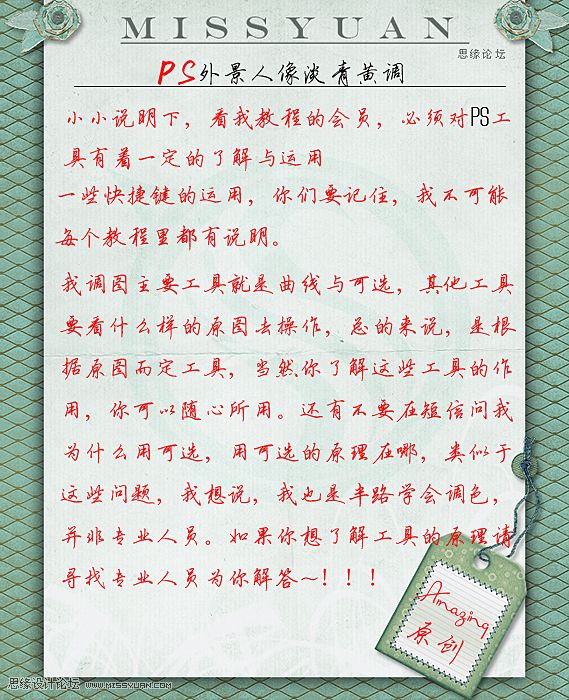 MISSYUAN
思缘论坛
PS外景人像淡青黄调
小小说明下，看我教程的会员，必须对PS工
具有着一定的了解与运用
一些快捷键的运用，你们要记住，我不可能
每个教程里都有说明。
我调图主要工具就是曲线与可选，其他工具
要看什么样的原图去操作，总的来说，是根
据原图而定工具，当然你了解这些工具的作
用，你可以随心所用。还有不要在短信问我
为什么用可选，用可选的原理在哪，类似于
这些问题，我想说，我也是半路学会调色，
并非专业人员。如果你想了解工具的原理请
寻找专业人员为你解答~！！！
Amazing
原创
思缘设计论坛 WWW.MISSYUAN.COM